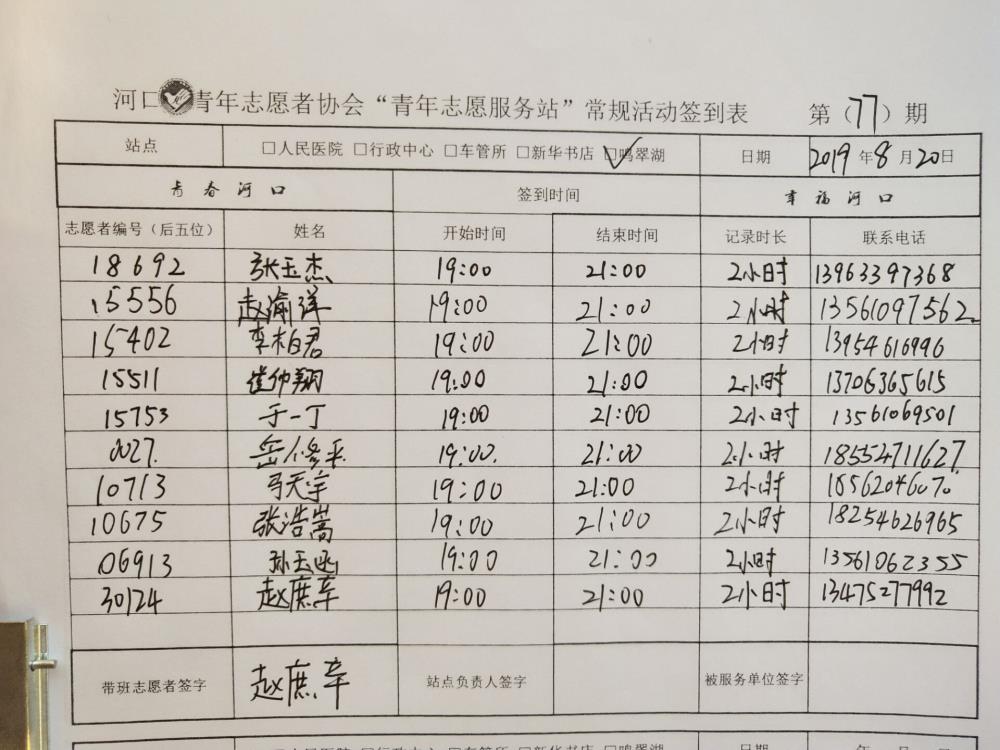 河口青年志愿者协会“青年志愿服务站”常规活动签到表 第（77）期
站点 □人民医院 □行政中心 □车管所 □新华书店 ☑鸣翠湖 日期 2019年8月20日
青春河口 签到时间 幸福河口
志愿者编号（后五位） 姓名 开始时间 结束时间 记录时长 联系电话
18692 张玉杰 19:00 21:00 2小时 13963397368
15556 赵渝洋 19:00 21:00 2小时 13561097562
15402 李柏君 19:00 21:00 2小时 13954616996
15511 崔仲翔 19:00 21:00 2小时 13706365615
15753 于一丁 19:00 21:00 2小时 13561069501
0027. 岳修平 19:00. 21:00 2小时 18554711627
10713 马天宇 19:00 21:00 2小时
10675 张浩嵩 19:00 21:00 2小时 18254626965
06913 孙玉函 19:00 21:00 2小时 13561062355
30124 赵庶辛 19:00 21:00 2小时 13475277992
带班志愿者签字 赵庶辛 站点负责人签字 被服务单位签字
□人民医院 □行政中心 □车管所 □新华书店 □鸣翠湖 日期 年 月 日